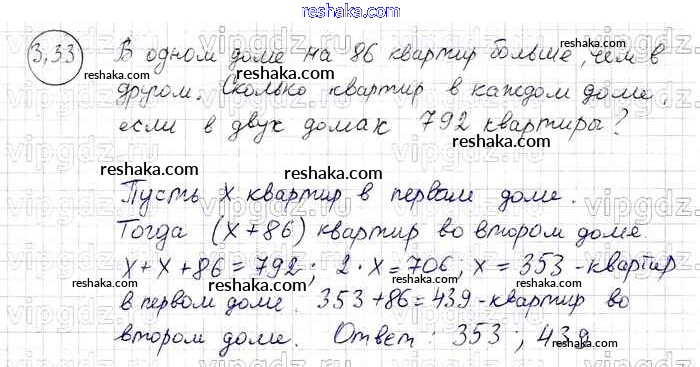 reshaka.com
3,33 В одном доме на 86 квартир больше, чем в
reshaka.com reshaka.com reshaka.com
другом. Сколько квартир в каждом доме,
reshaka.com
если в двух домах 792 квартиры?
reshaka.com
Пусть х квартир в первом доме.
reshaka.com
Тогда (х+86) квартир во втором доме.
reshaka.com reshaka.com reshaka.com
х+х+86=792; 2·х=706; х=353 - квартир
reshaka.com
в первом доме. 353+86=439 - квартир во
reshaka.com reshaka.com
втором доме. Ответ: 353; 439
reshaka.com
vipgdz vipgdz vipgdz vipgdz